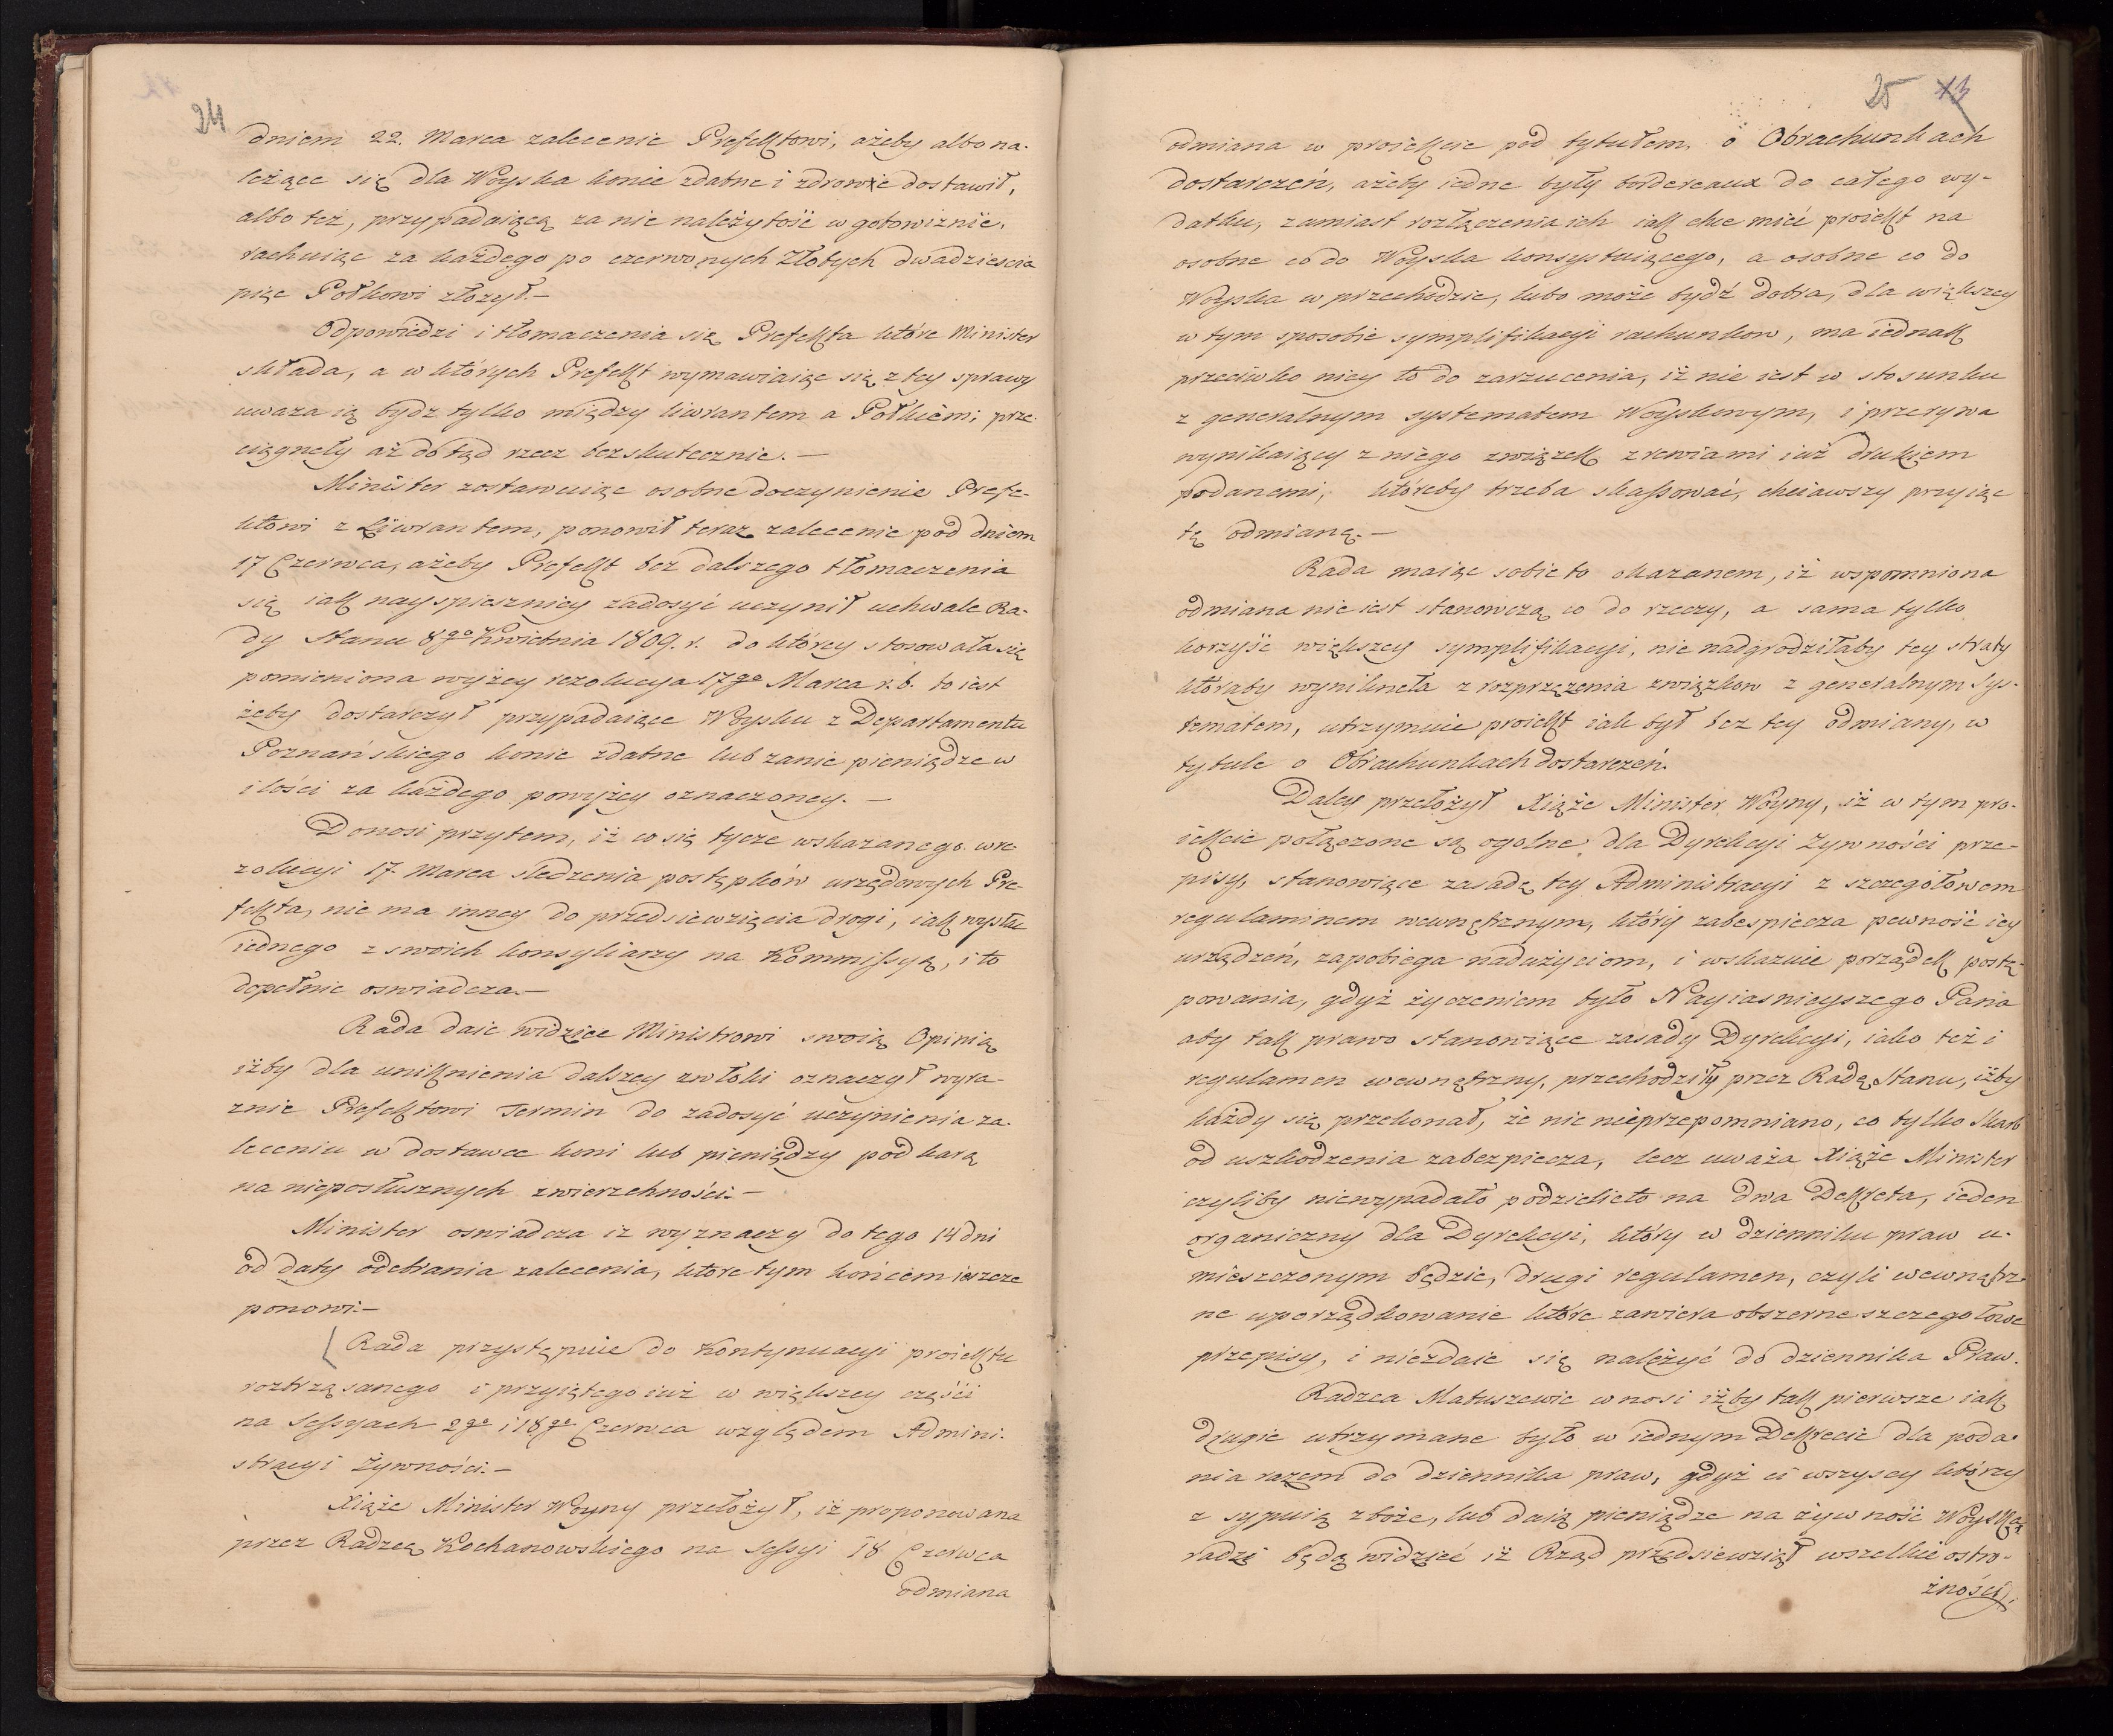 24
dniem 22. Marca zalecenie Prefektowi, ażeby albo na-
leżące się dla Woyska konie zdatne i zdrowie dostawił,
albo też, przypadaiącą za nie należytość w gotowiznie,
rachuiąc za każdego po czerwonych Złotych dwadziescia
pięc Połkowi złożył.—
Odpowiedzi i tłomaczenia się Prefekta które Minister
składa, a w których Prefekt wymawiaiąc się z tey sprawy
uważa ią bydz tylko między liwrantem a Połkiem; prze-
ciągneły aż dotąd rzecz bezskutecznie.—
Minister zostawuiąc osobne doczynienie Prefe-
ktowi z Liwrantem, ponowił teraz zalecenie pod dniem
17 Czerwca, ażeby Prefekt bez dalszego tłomaczenia
się iak nayspieszniey zadosyć uczynił uchwale Ra-
dy Stanu 8go Kwietnia 1809. r. do którey stosowała się
pomieniona wyżey rezolucya 17go Marca r. b. to iest
żeby dostarczył przypadaiące Woysku z Departamentu
Poznańskiego konie zdatne lub zanie pieniądze w
ilości za każdego powyżey oznaczoney.—
Donosi przytem, iż co się tycze wskazanego w re-
zolucyi 17. Marca sledzenia postępków urzędowych Pre-
fekta, nie ma inney do przedsiewzięcia drogi, iak wysłać
iednego z swoich konsyliarzy na Kommissyą, i to
dopełnic oswiadcza.—
Rada daie widziec Ministrowi swoią Opinią
iżby dla uniknienia dalszey zwłoki oznaczył wyra-
znie Prefektowi Termin do zadosyć uczynienia za-
leceniu w dostawce koni lub pieniędzy pod karą
na nieposłusznych zwierzchności.—
Minister oswiadcza iz wyznaczy do tego 14 dni
od daty odebrania zalecenia, ktore tym końcem ieszcze
ponowi.—
Rada przystępuie do Kontynuacyi proiektu
roztrząsanego i przyiętego iuż w większey części
na Sessyach 2go i 18go Czerwca względem Admini-
stracyi Żywności.—
Xiąże Minister Woyny przełożył, iż proponowana
przez Radzcę Kochanowskiego na Sessyi 18 Czerwca
odmiana
25 13
odmiana w proiekcie pod tytułem, o Obrachunkach
dostarczeń, ażeby iedne były bordereaux do całego wy-
datku, zamiast rozłączenia ich iak chce mieć proiekt na
osobne co do Woyska konsystuiącego, a osobne co do
Woyska w przechodzie, lubo może bydź dobra, dla większey
w tym sposobie symplifikacyi rachunkow, ma iednak
przeciwko niey to do zarzucenia, iż nie iest w stosunku
z generalnym systematem Woyskowym, i przerywa
wynikaiący z niego związek z rewiami iuż drukiem
podanemi, któreby trzeba skassować, chciawszy przyiąc
tę odmianę.—
Rada maiąc sobie to okazanem, iż wspomniona
odmiana nie iest stanowczą co do rzeczy, a sama tylko
korzyść większey symplifikacyi, nie nadgrodziłaby tey straty
któraby wyniknęła z rozprzężenia związkow z generalnym Sys-
tematem, utrzymuie proiekt iak był bez tey odmiany, w
tytule o Obrachunkach dostarczeń.
Daley przełożył Xiąże Minister Woyny, iż w tym pro-
iekcie połączone są ogolne dla Dyrekcyi Żywności prze-
pisy, stanowiące zasadę tey Administracyi z szczegółowem
regulaminem wewnętrznym, który zabespiecza pewność iey
urządzeń, zapobiega nadużyciom, i wskazuie porządek postę-
powania, gdyż życzeniem było Nayiasnieyszego Pana
aby tak prawo stanowiące zasady Dyrekcyi, iako też i
regulamen wewnętrzny, przechodziły przez Radę Stanu, iżby
każdy się przekonał, że nic nieprzepomniano, co tylko Skarb
od uszkodzenia zabezpiecza, lecz uważa Xiąże Minister
czyliby niewypadało podzielić to na dwa Dekreta, ieden
organiczny dla Dyrekcyi, który w dzienniku praw u-
mieszczonym będzie, drugi regulamen, czyli wewnętrz-
ne uporządkowanie które zawiera obszerne szczegołowe
przepisy, i niezdaie się należyć do dziennika Praw.
Radzca Matuszewic wnosi iżby tak pierwsze iak
drugie utrzymane było w iednym Dekrecie dla poda-
nia razem do dziennika praw, gdyż ci wszyscy którzy
z sypuią zboże, lub daią pieniądze na żywność Woyska
radzi będą widzieć iż Rząd przedsiewziął wszelkie ostro-
żności,